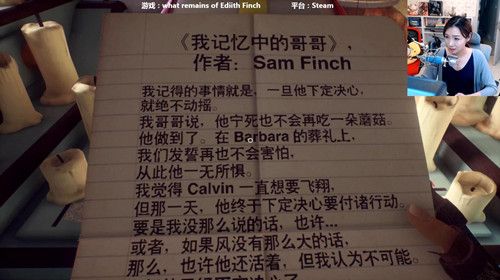 游戏：what remains of Ediith Finch 平台：Steam
《我记忆中的哥哥》，
作者：Sam Finch
我记得的事情就是，一旦他下定决心，
就绝不动摇。
我哥哥说，他宁死也不会再吃一朵蘑菇。
他做到了。在 Barbara 的葬礼上，
我们发誓再也不会害怕，
从此他一无所惧。
我觉得 Calvin 一直想要飞翔，
但那一天，他终于下定决心要付诸行动。
要是我没那么说的话，也许...
或者，如果风没有那么大的话，
那么，也许他还活着，但我认为不可能。